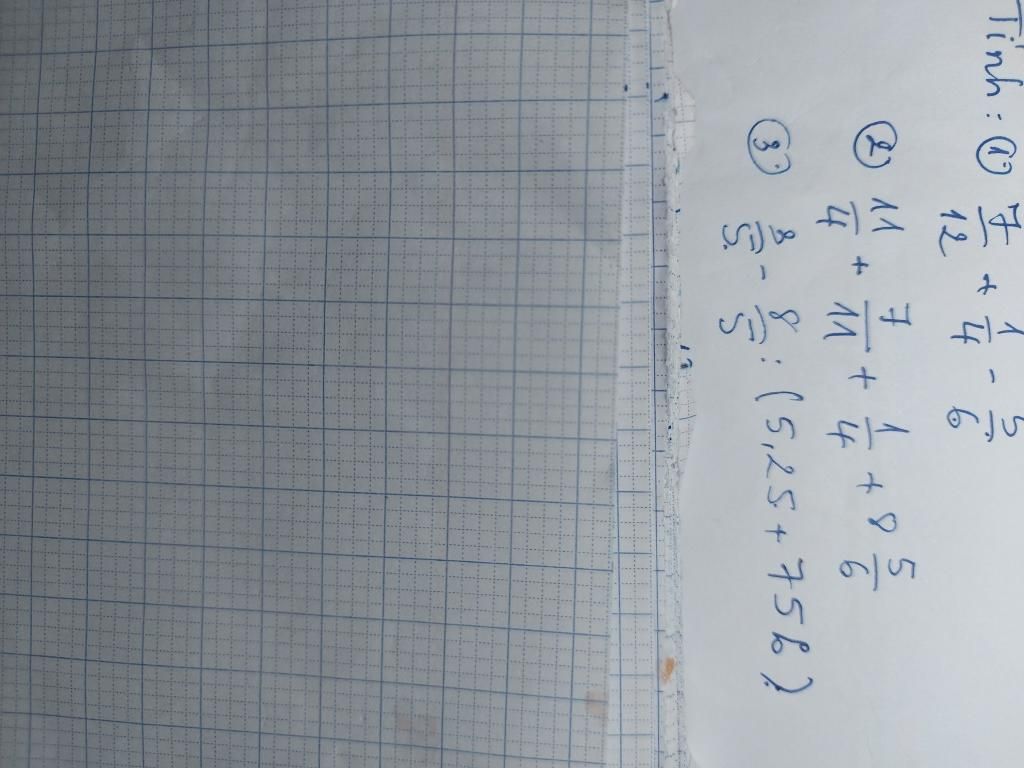 Tính: ① 7/12 + 1/4 - 5/6
② 11/4 + 7/11 + 1/4 + 8 5/6
③ 8/5 - 8/5 : (5,25 + 75%)